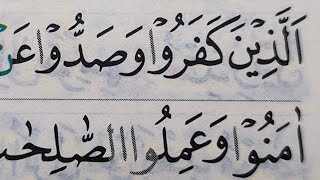 اَلَّذِيۡنَ كَفَرُوۡا وَصَدُّوۡا عَنۡ
اٰمَنُوۡا وَعَمِلُوا الصّٰلِحٰتِ